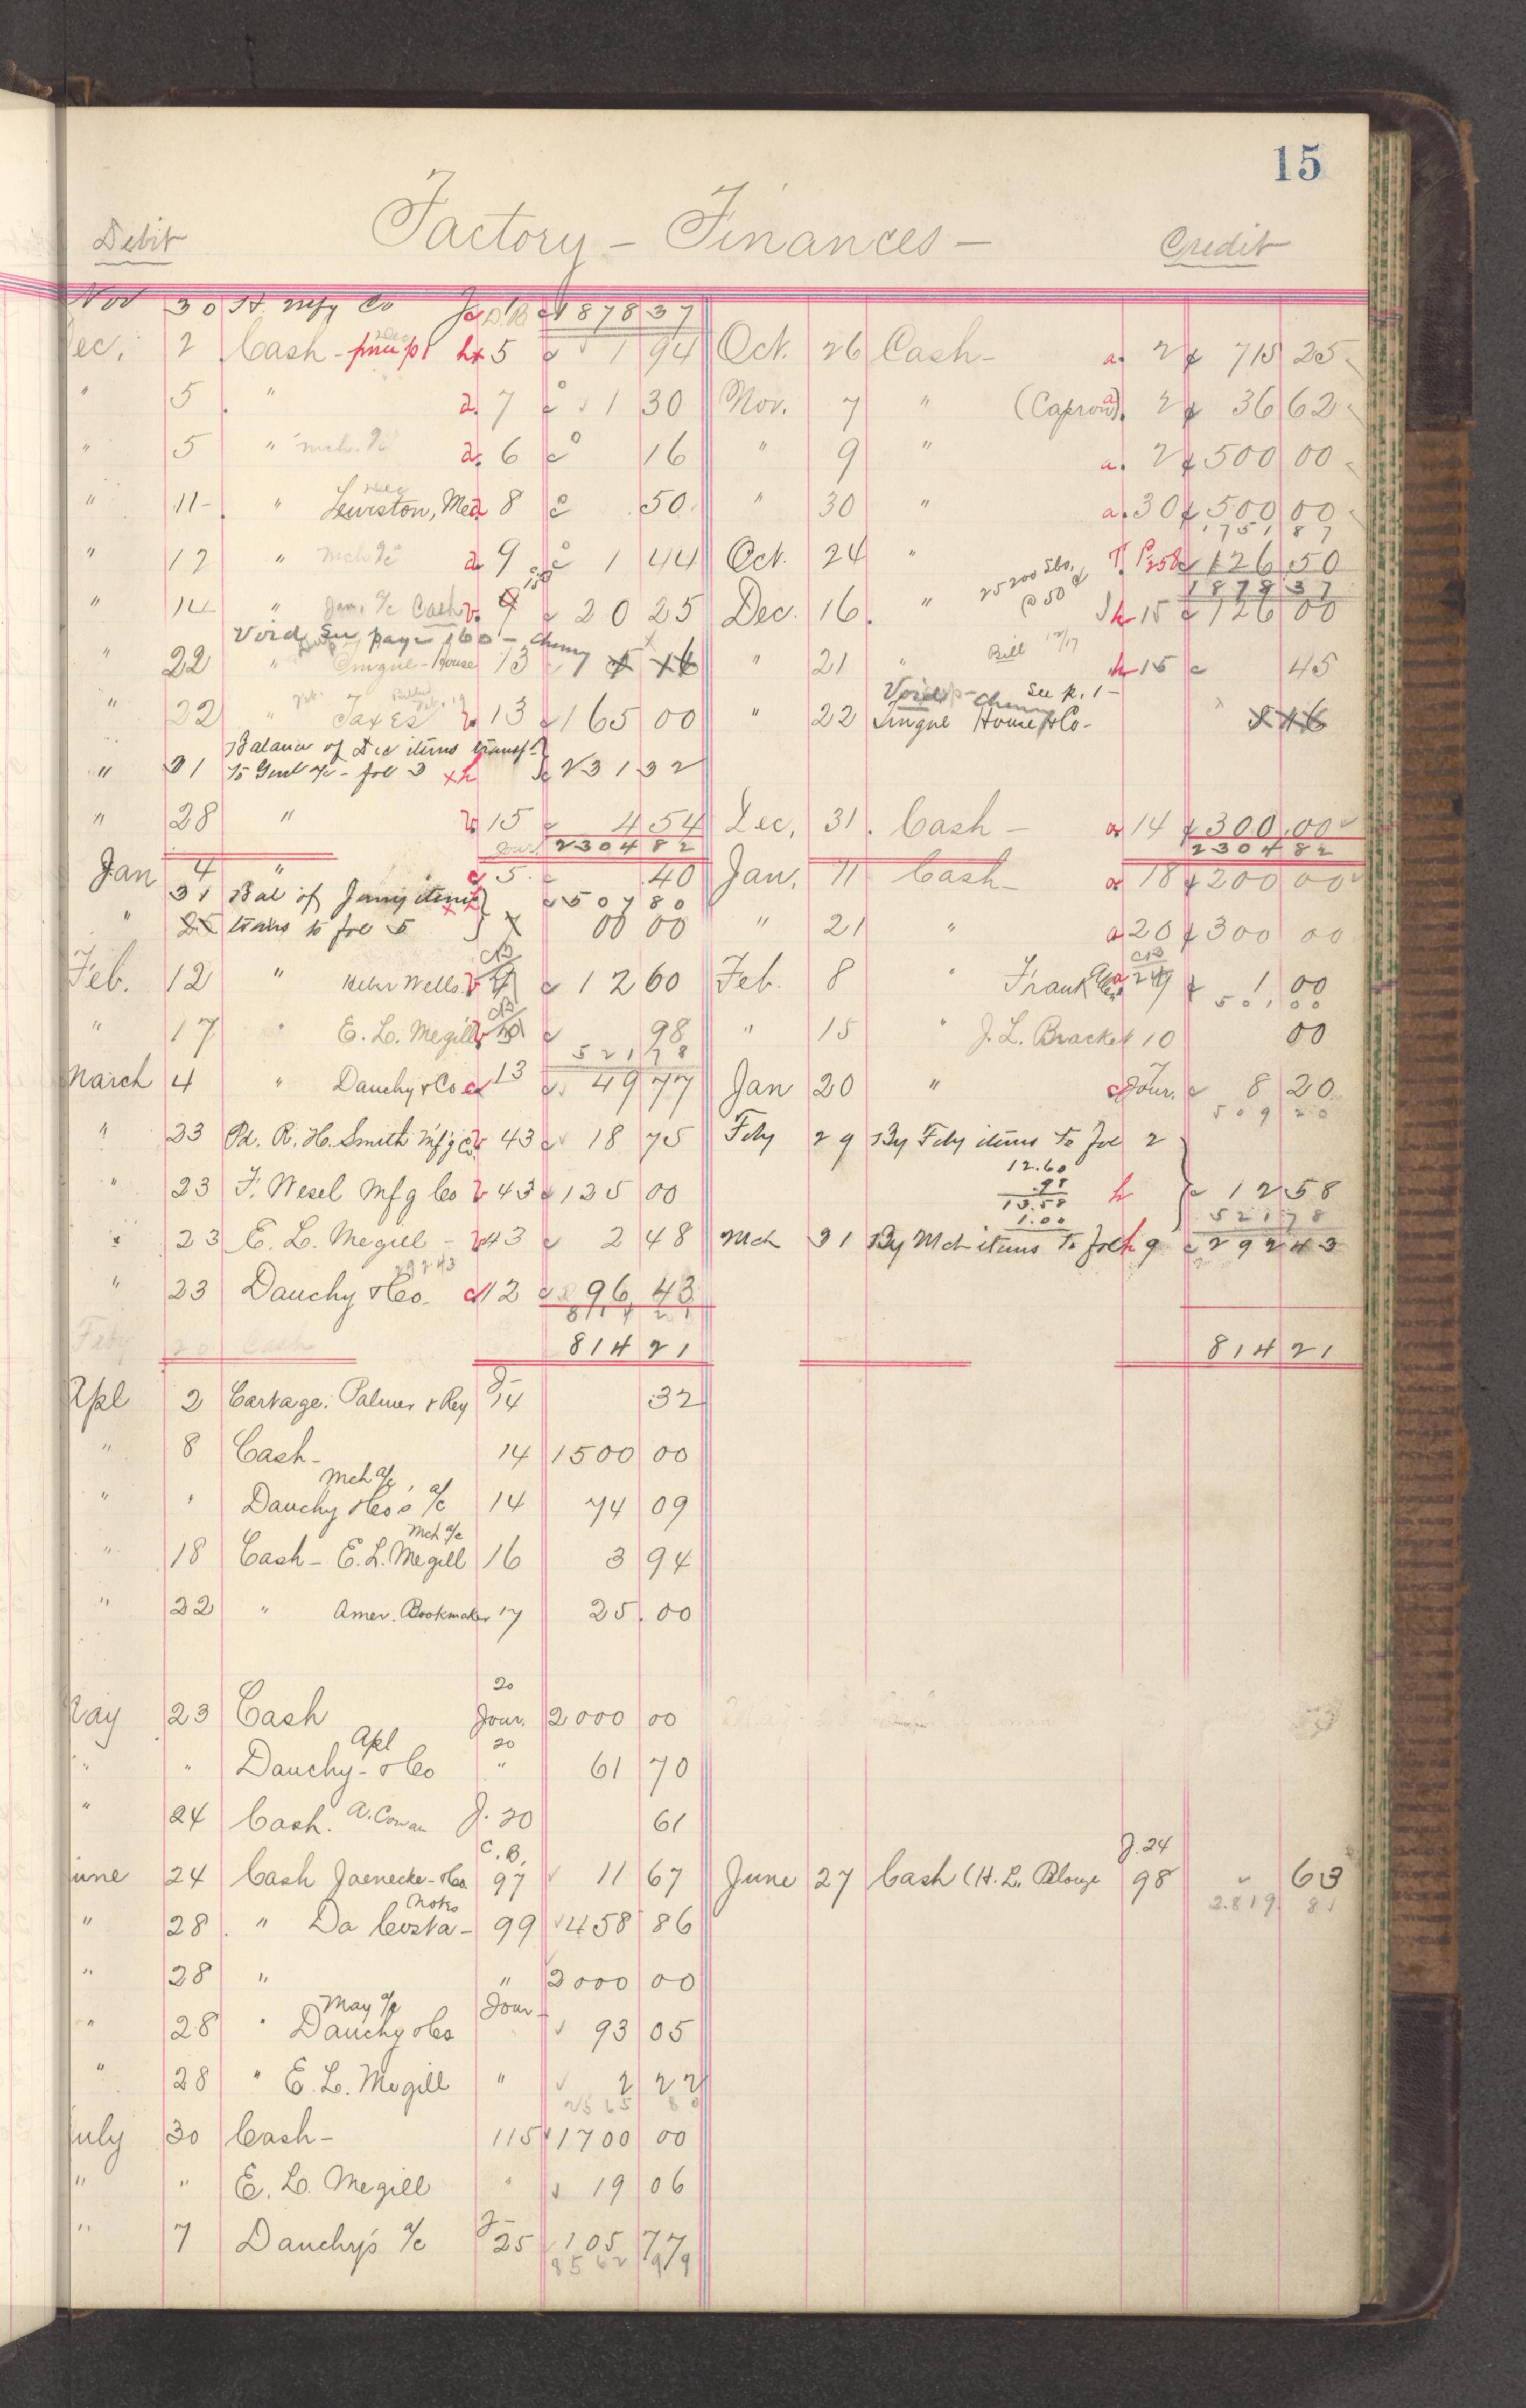 15
Debit Factory - Finances - Credit
Nov 30 St. Mfg Co 1878 37
Dec. 2 Cash - 5 1 94 Oct. 26 Cash - a. 2 715 25
" 5 " a. 7 1 30 Nov. 7 " (Capron) a. 2 36 62
" 5 " mch. a/c a. 6 16 " 9 " a. 2 500 00
" 11 - " Lewiston, Me a 8 50 " 30 " a. 30 500 00
1751 87
" 12 " mch a/c a 9 1 44 Oct. 24 " P 258 126 50
25200 lbs. @ 50 ¢ 1878 37
" 14 " Jan. a/c Cash 20 25 Dec. 16. " h 15 126 00
Void See page 160 - Cheney
" 22 " Tingue - House 13 " 21 " Bill 12/17 h 15 45
Void - Cheney See p. 1 -
" 22 " Taxes 13 165 00 " 22 Tingue House & Co - 5 16
Balance of Dec items transf
" 31 to Genl a/c - fol 3 x h 231 32
" 28 " 15 4 54 Dec. 31. Cash - a 14 300.00
2304 82 2304 82
Jan 4 " 5 .40 Jan. 11 Cash - a 18 200 00
31 Bal of Jany items 507 80
" 25 trans to fol 5 00 00 " 21 " a 20 300 00
Feb. 12 " Heber Wells. CB 12 60 Feb. 8 " Frank CB 1 00
501 00
" 17 " E. L. Megill CB 98 " 15 " J. L. Bracket 10 00
521 78
March 4 " Dauchy & Co 13 49 77 Jan 20 " Jour. 8 20
509 20
" 23 Pd. R. H. Smith Mf'g Co. 43 18 75 Feby 29 By Feby items to fol 2
12.60
.98
" 23 F. Wesel Mfg Co 43 125 00 13.58 h 12 58
1.00 521 78
" 23 E. L. Megill - 43 2 48 Mch 31 By Mch items to fol 9 292 43
292 43
" 23 Dauchy & Co. 12 96 43
814 21
Feby 20 Cash 814 21 814 21
Apl 2 Cartage. Palmer & Rey J 14 .32
" 8 Cash - 14 1500 00
Mch a/c
" " Dauchy & Co's a/c 14 74 09
Mch a/c
" 18 Cash - E. L. Megill 16 3 94
" 22 " Amer. Bookmaker 17 25.00
20
May 23 Cash Jour. 2000 00
Apl 20
" " Dauchy - & Co " 61 70
" 24 Cash. A. Cowan J. 20 61
C. B. J. 24
June 24 Cash Jaenecke - & Co. 97 11 67 June 27 Cash (H. L. Pelouze 98 63
Notes 2819 81
" 28. " Da Costa - 99 458 86
" 28 " " 2000 00
May a/c Jour -
" 28 " Dauchy & Co 93 05
" 28 " E. L. Megill " 2 22
2565 80
July 30 Cash - 115 1700 00
" " E. L. Megill " 19 06
" 7 Dauchy's a/c J 25 105 77